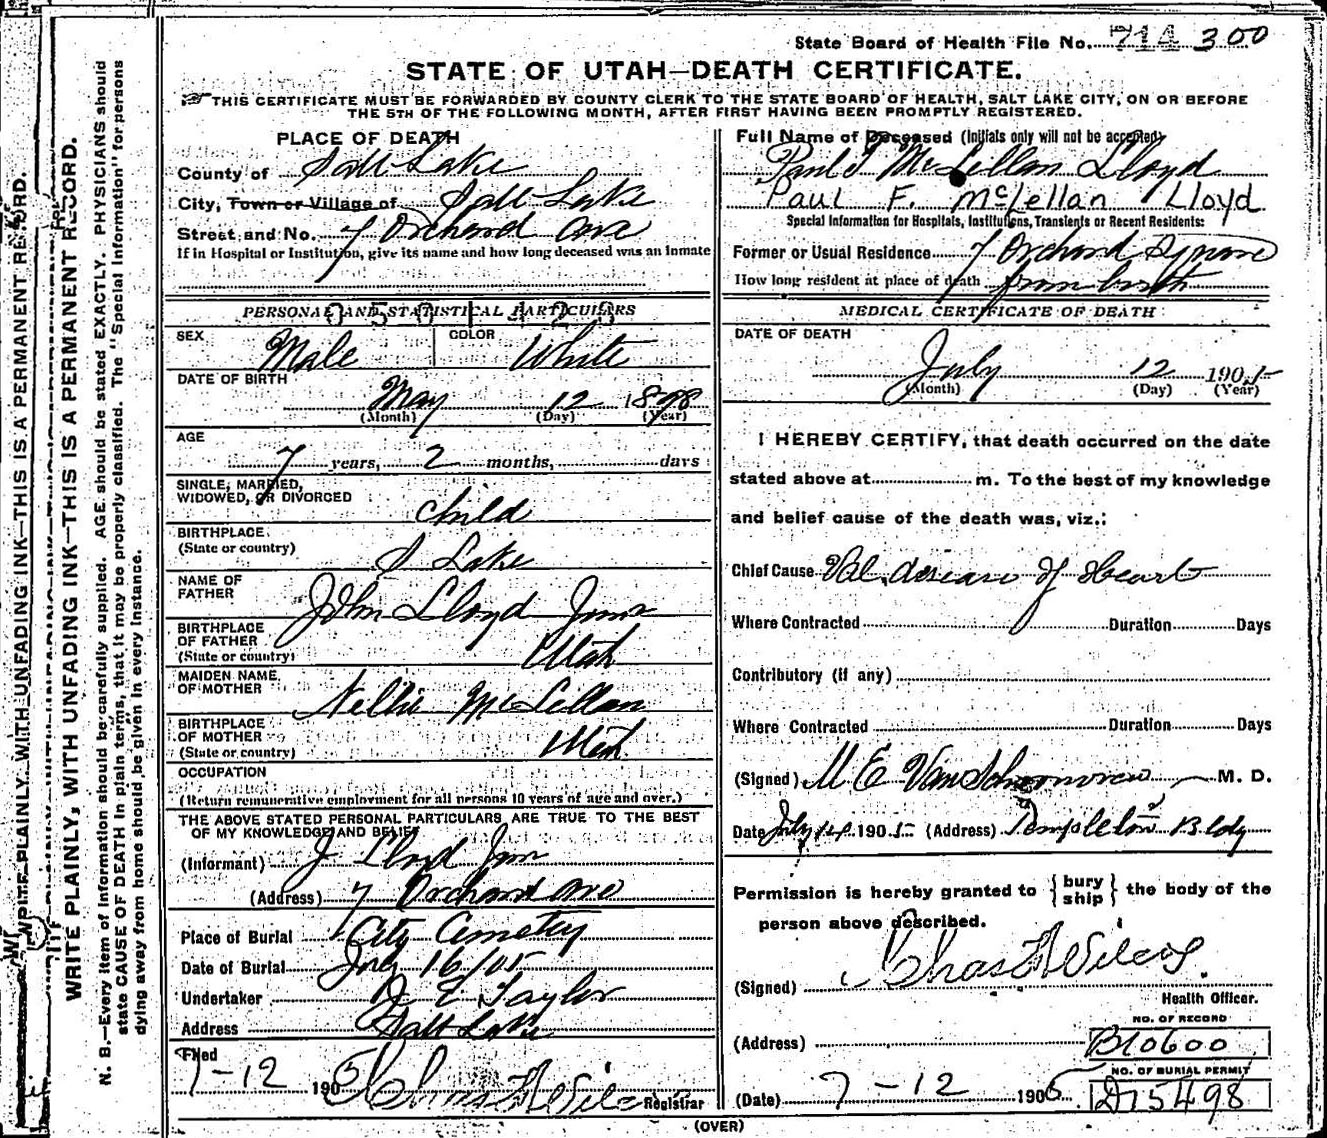 State Board of Health File No. 714 300
STATE OF UTAH—DEATH CERTIFICATE.
THIS CERTIFICATE MUST BE FORWARDED BY COUNTY CLERK TO THE STATE BOARD OF HEALTH, SALT LAKE CITY, ON OR BEFORE
THE 5TH OF THE FOLLOWING MONTH, AFTER FIRST HAVING BEEN PROMPTLY REGISTERED.
PLACE OF DEATH
County of Salt Lake
City, Town or Village of Salt Lake
Street and No. 7 Orchard Ave
If in Hospital or Institution, give its name and how long deceased was an inmate
PERSONAL AND STATISTICAL PARTICULARS
0350 1423
SEX Male COLOR White
DATE OF BIRTH
May 12 1898
(Month) (Day) (Year)
AGE
7 years, 2 months, days
SINGLE, MARRIED,
WIDOWED, OR DIVORCED
child
BIRTHPLACE
(State or country) S Lake
NAME OF
FATHER John Lloyd Junr
BIRTHPLACE
OF FATHER
(State or country) Utah
MAIDEN NAME
OF MOTHER Nellie McLellan
BIRTHPLACE
OF MOTHER
(State or country) Utah
OCCUPATION
(Return remunerative employment for all persons 10 years of age and over.)
THE ABOVE STATED PERSONAL PARTICULARS ARE TRUE TO THE BEST
OF MY KNOWLEDGE AND BELIEF
(Informant) J Lloyd Jun
(Address) 7 Orchard Ave
Place of Burial City Cemetry
Date of Burial July 16/05
Undertaker Taylor
Address Salt Lake
Filed
7-12 1905 Chas Wilcox Registrar
Full Name of Deceased (Initials only will not be accepted)
Paul F McLellan Lloyd
Paul F. McLellan Lloyd
Special Information for Hospitals, Institutions, Transients or Recent Residents:
Former or Usual Residence 7 Orchard
How long resident at place of death from birth
MEDICAL CERTIFICATE OF DEATH
DATE OF DEATH
July 12 1905
(Month) (Day) (Year)
I HEREBY CERTIFY, that death occurred on the date
stated above at m. To the best of my knowledge
and belief cause of the death was, viz.:
Chief Cause Val. disease of Heart
Where Contracted Duration Days
Contributory (if any)
Where Contracted Duration Days
(Signed) M E Van M. D.
Date July 14 1905 (Address) Templeton Bldg
Permission is hereby granted to { bury ship } the body of the
person above described.
(Signed) Chas Wilcox
Health Officer.
NO. OF RECORD
(Address) B10600
NO. OF BURIAL PERMIT
(Date) 7-12 1905 D15498
(OVER)
WRITE PLAINLY, WITH UNFADING INK—THIS IS A PERMANENT RECORD.
WRITE PLAINLY, WITH UNFADING INK—THIS IS A PERMANENT RECORD.
N. B.—Every item of information should be carefully supplied. AGE should be stated EXACTLY. PHYSICIANS should
state CAUSE OF DEATH in plain terms, that it may be properly classified. The "Special Information" for persons
dying away from home should be given in every instance.